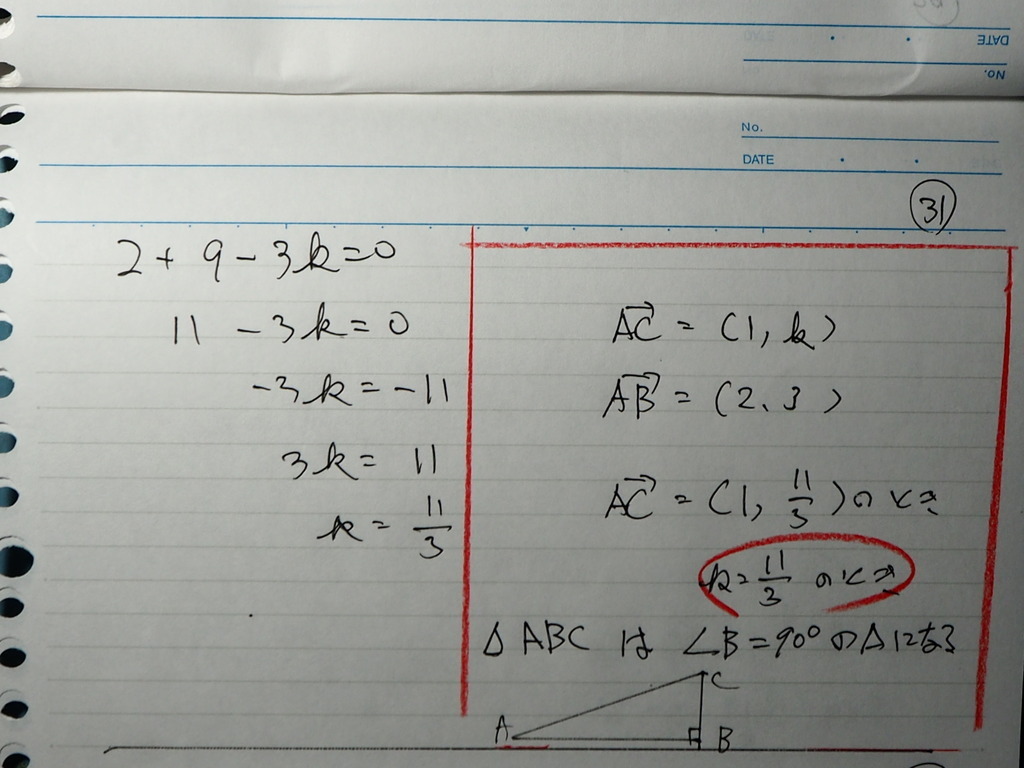 DATE
No.
No.
DATE
31
2 + 9 - 3k = 0
11 - 3k = 0
-3k = -11
3k = 11
k = 11/3
AC = (1, k)
AB = (2、3)
AC = (1, 11/3) のとき
k = 11/3 のとき
△ABC は ∠B = 90° の△になる
A
C
B